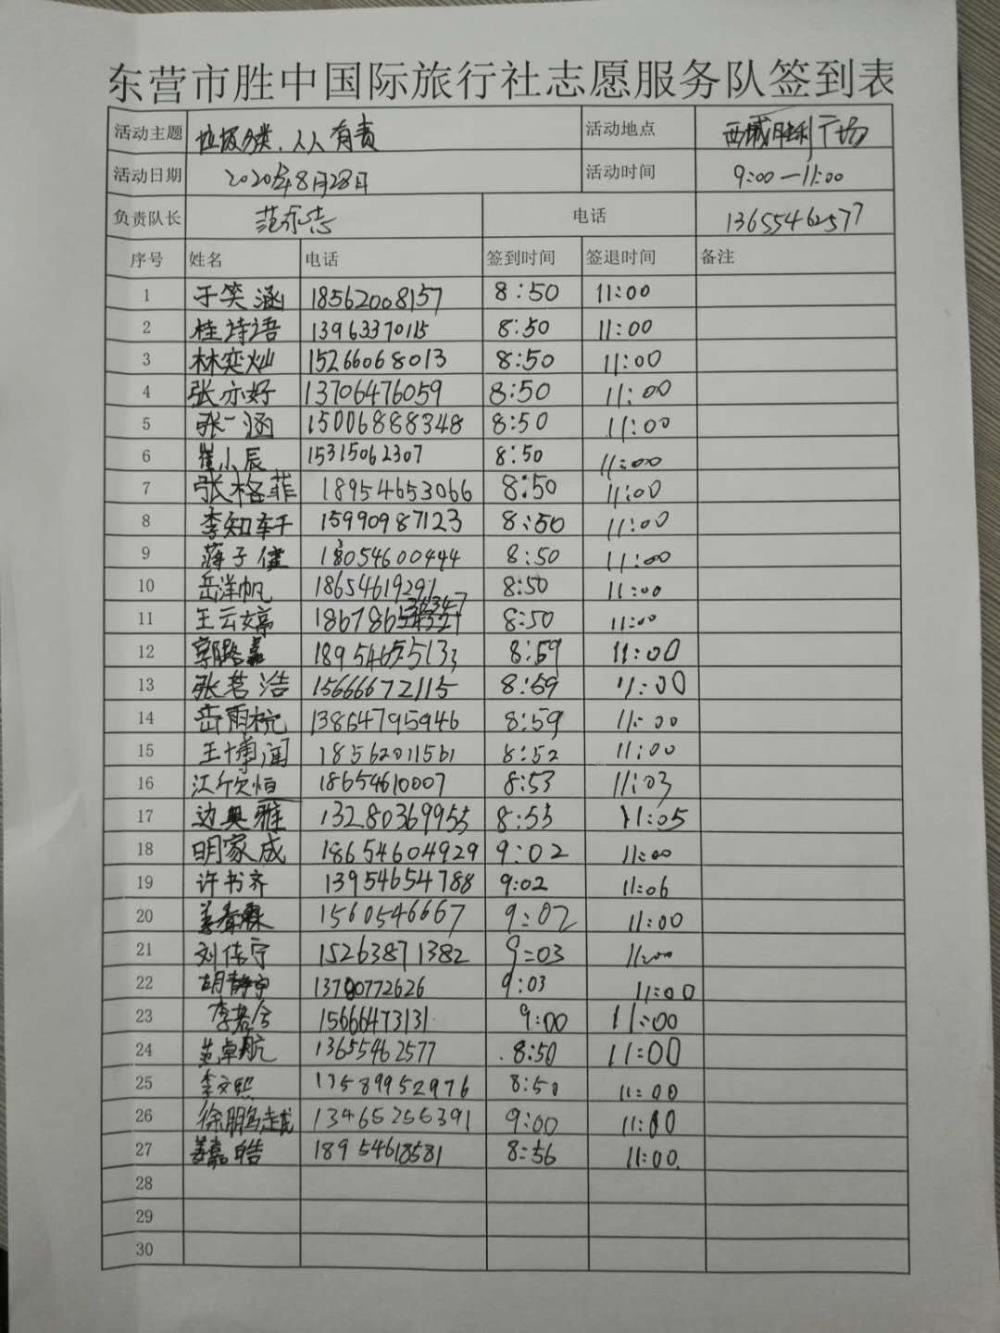 东营市胜中国际旅行社志愿服务队签到表
活动主题 垃圾分类.人人有责 活动地点 西城胜利广场
活动日期 2020年8月28日 活动时间 9:00—11:00
负责队长 范东志 电话 13655462577
序号 姓名 电话 签到时间 签退时间 备注
1 于笑涵 18562008157 8:50 11:00
2 桂诗语 13963370115 8:50 11:00
3 林奕灿 15266068013 8:50 11:00
4 张亦好 13706476059 8:50 11:00
5 张一涵 15006888348 8:50 11:00
6 崔小辰 15315062307 8:50 11:00
7 张格菲 18954653066 8:50 11:00
8 李知轩 15990987123 8:50 11:00
9 蒋子健 18054600444 8:50 11:00
10 岳洋帆 18654619291 8:50 11:00
11 王云婷 8:50 11:00
12 郭璐嘉 8:59 11:00
13 张茗浩 15666672115 8:59 11:00
14 岳雨桐 13864795946 8:59 11:00
15 王博闻 18562011561 8:52 11:00
16 江欣恒 18654610007 8:53 11:03
17 边奥雅 13280369955 8:55 11:05
18 明家成 18654604929 9:02 11:00
19 许书齐 13954654788 9:02 11:06
20 1560546667 9:02 11:00
21 刘佳宁 15263871382 9:03 11:00
22 胡静宇 13780772626 9:03 11:00
23 15666473131 9:00 11:00
24 范卓航 13655462577 8:50 11:00
25 李文熙 13589952976 8:50 11:00
26 徐鹏越 13465256391 9:00 11:00
27 姜嘉皓 18954618581 8:56 11:00
28
29
30